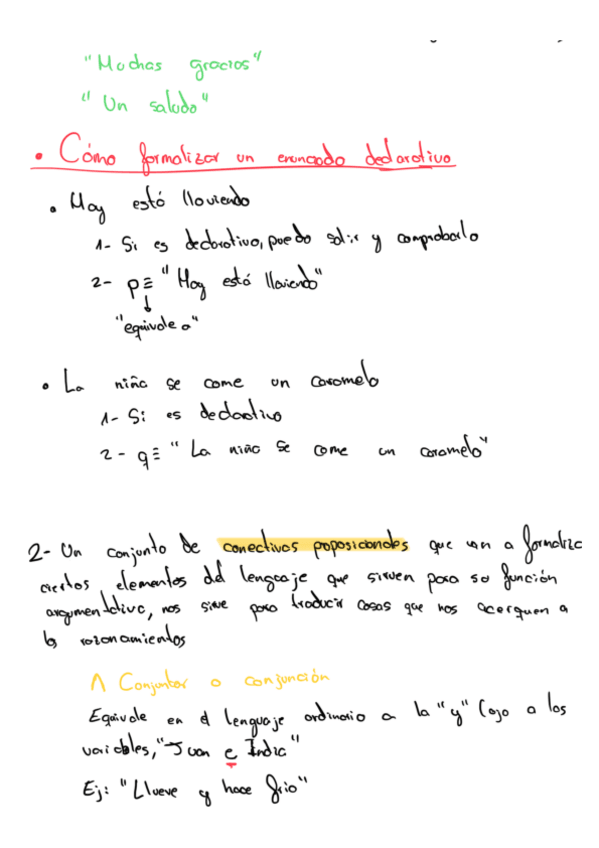 "Muchas gracias"
"Un saludo"
• Cómo formalizar un enunciado declarativo
• Hoy está lloviendo
1- Si es declarativo, puedo salir y comprobarlo
2- p ≡ "Hoy está lloviendo"
↓
"equivale a"
• La niña se come un caramelo
1- Si es declarativo
2- q ≡ "La niña se come un caramelo"
2- Un conjunto de conectivas poposicionales que van a formalizar
ciertos elementos del lenguaje que sirven para su función
argumentativa, nos sirve para traducir cosas que nos acerquen a
los razonamientos
∧ Conjuntor o conjunción
Equivale en el lenguaje ordinario a la "y" (ojo a las
variables, "Juan e India"
Ej: "Llueve y hace frio"